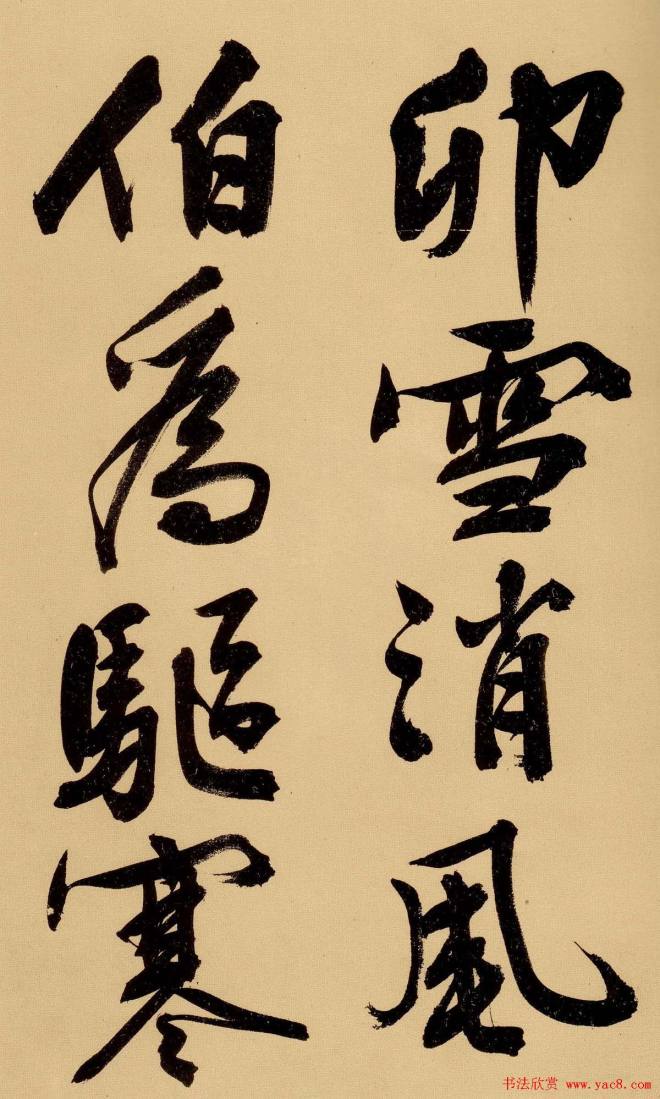 卯雪消風
伯為驅寒
书法欣赏 www.yac8.com